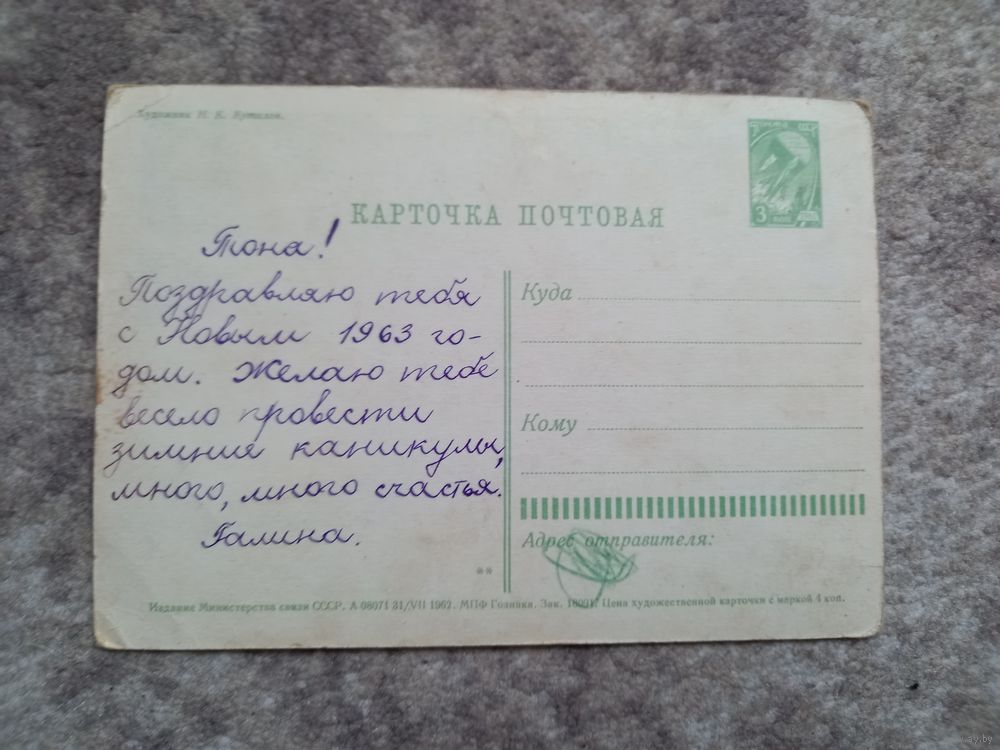 Художник Н. К. Кутилов.
ПОЧТА СССР
3
КАРТОЧКА ПОЧТОВАЯ
Тона!
Поздравляю тебя
с Новым 1963 го-
дом. Желаю тебе
весело провести
зимние каникулы,
много, много счастья.
Галина.
Куда
Кому
Адрес отправителя:
**
Издание Министерства связи СССР. А-08071 31/VII 1962. МПФ Гознака. Зак. Цена художественной карточки с маркой 4 коп.
ay.by